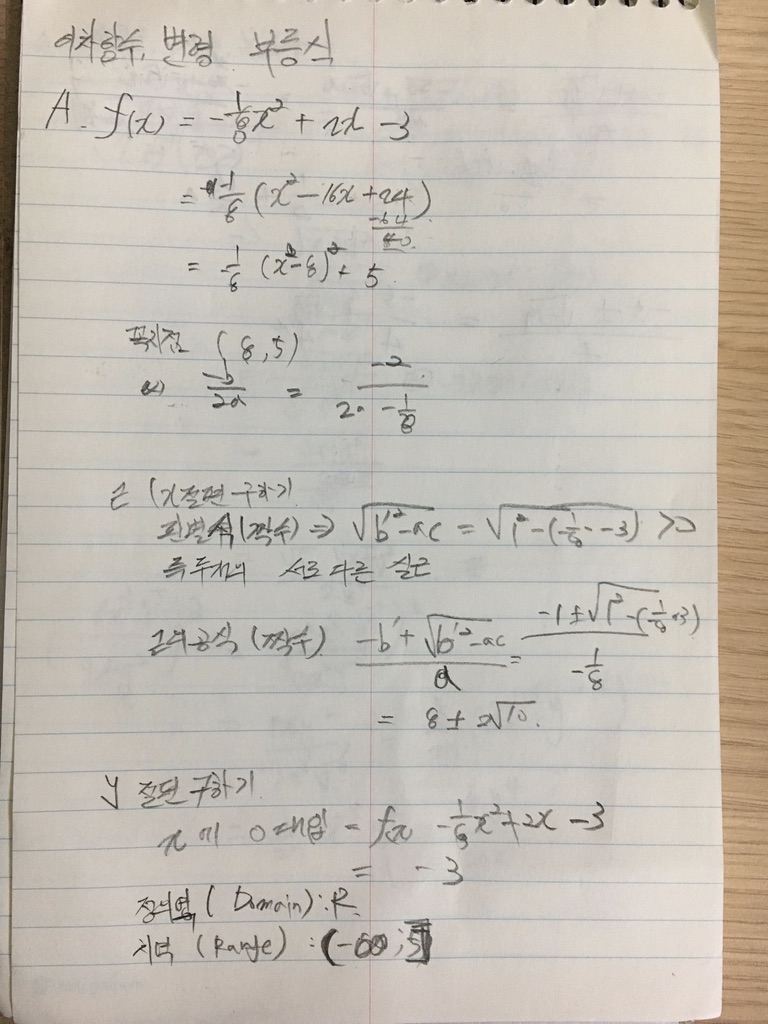 이차함수, 변형 부등식
A. f(x) = -1/8x² + 2x - 3
= -1/8 (x² - 16x + 24)
-64
40
= -1/8 (x - 8)² + 5
꼭지점 (8, 5)
-b/2a = -2/(2 · -1/8)
근 (x절편 구하기
판별식 (짝수) ⇒ √(b'² - ac) = √(1² - (-1/8 · -3)) > 0
즉 두개의 서로 다른 실근
근의공식 (짝수) (-b' + √(b'² - ac))/a = (-1 ± √(1² - (-1/8 · 3)))/(-1/8)
= 8 ± 2√10.
y 절편 구하기
x에 0 대입 = f(x) -1/8x² + 2x - 3
= -3
정의역 (Domain) : R.
치역 (Range) : (-∞, 5]